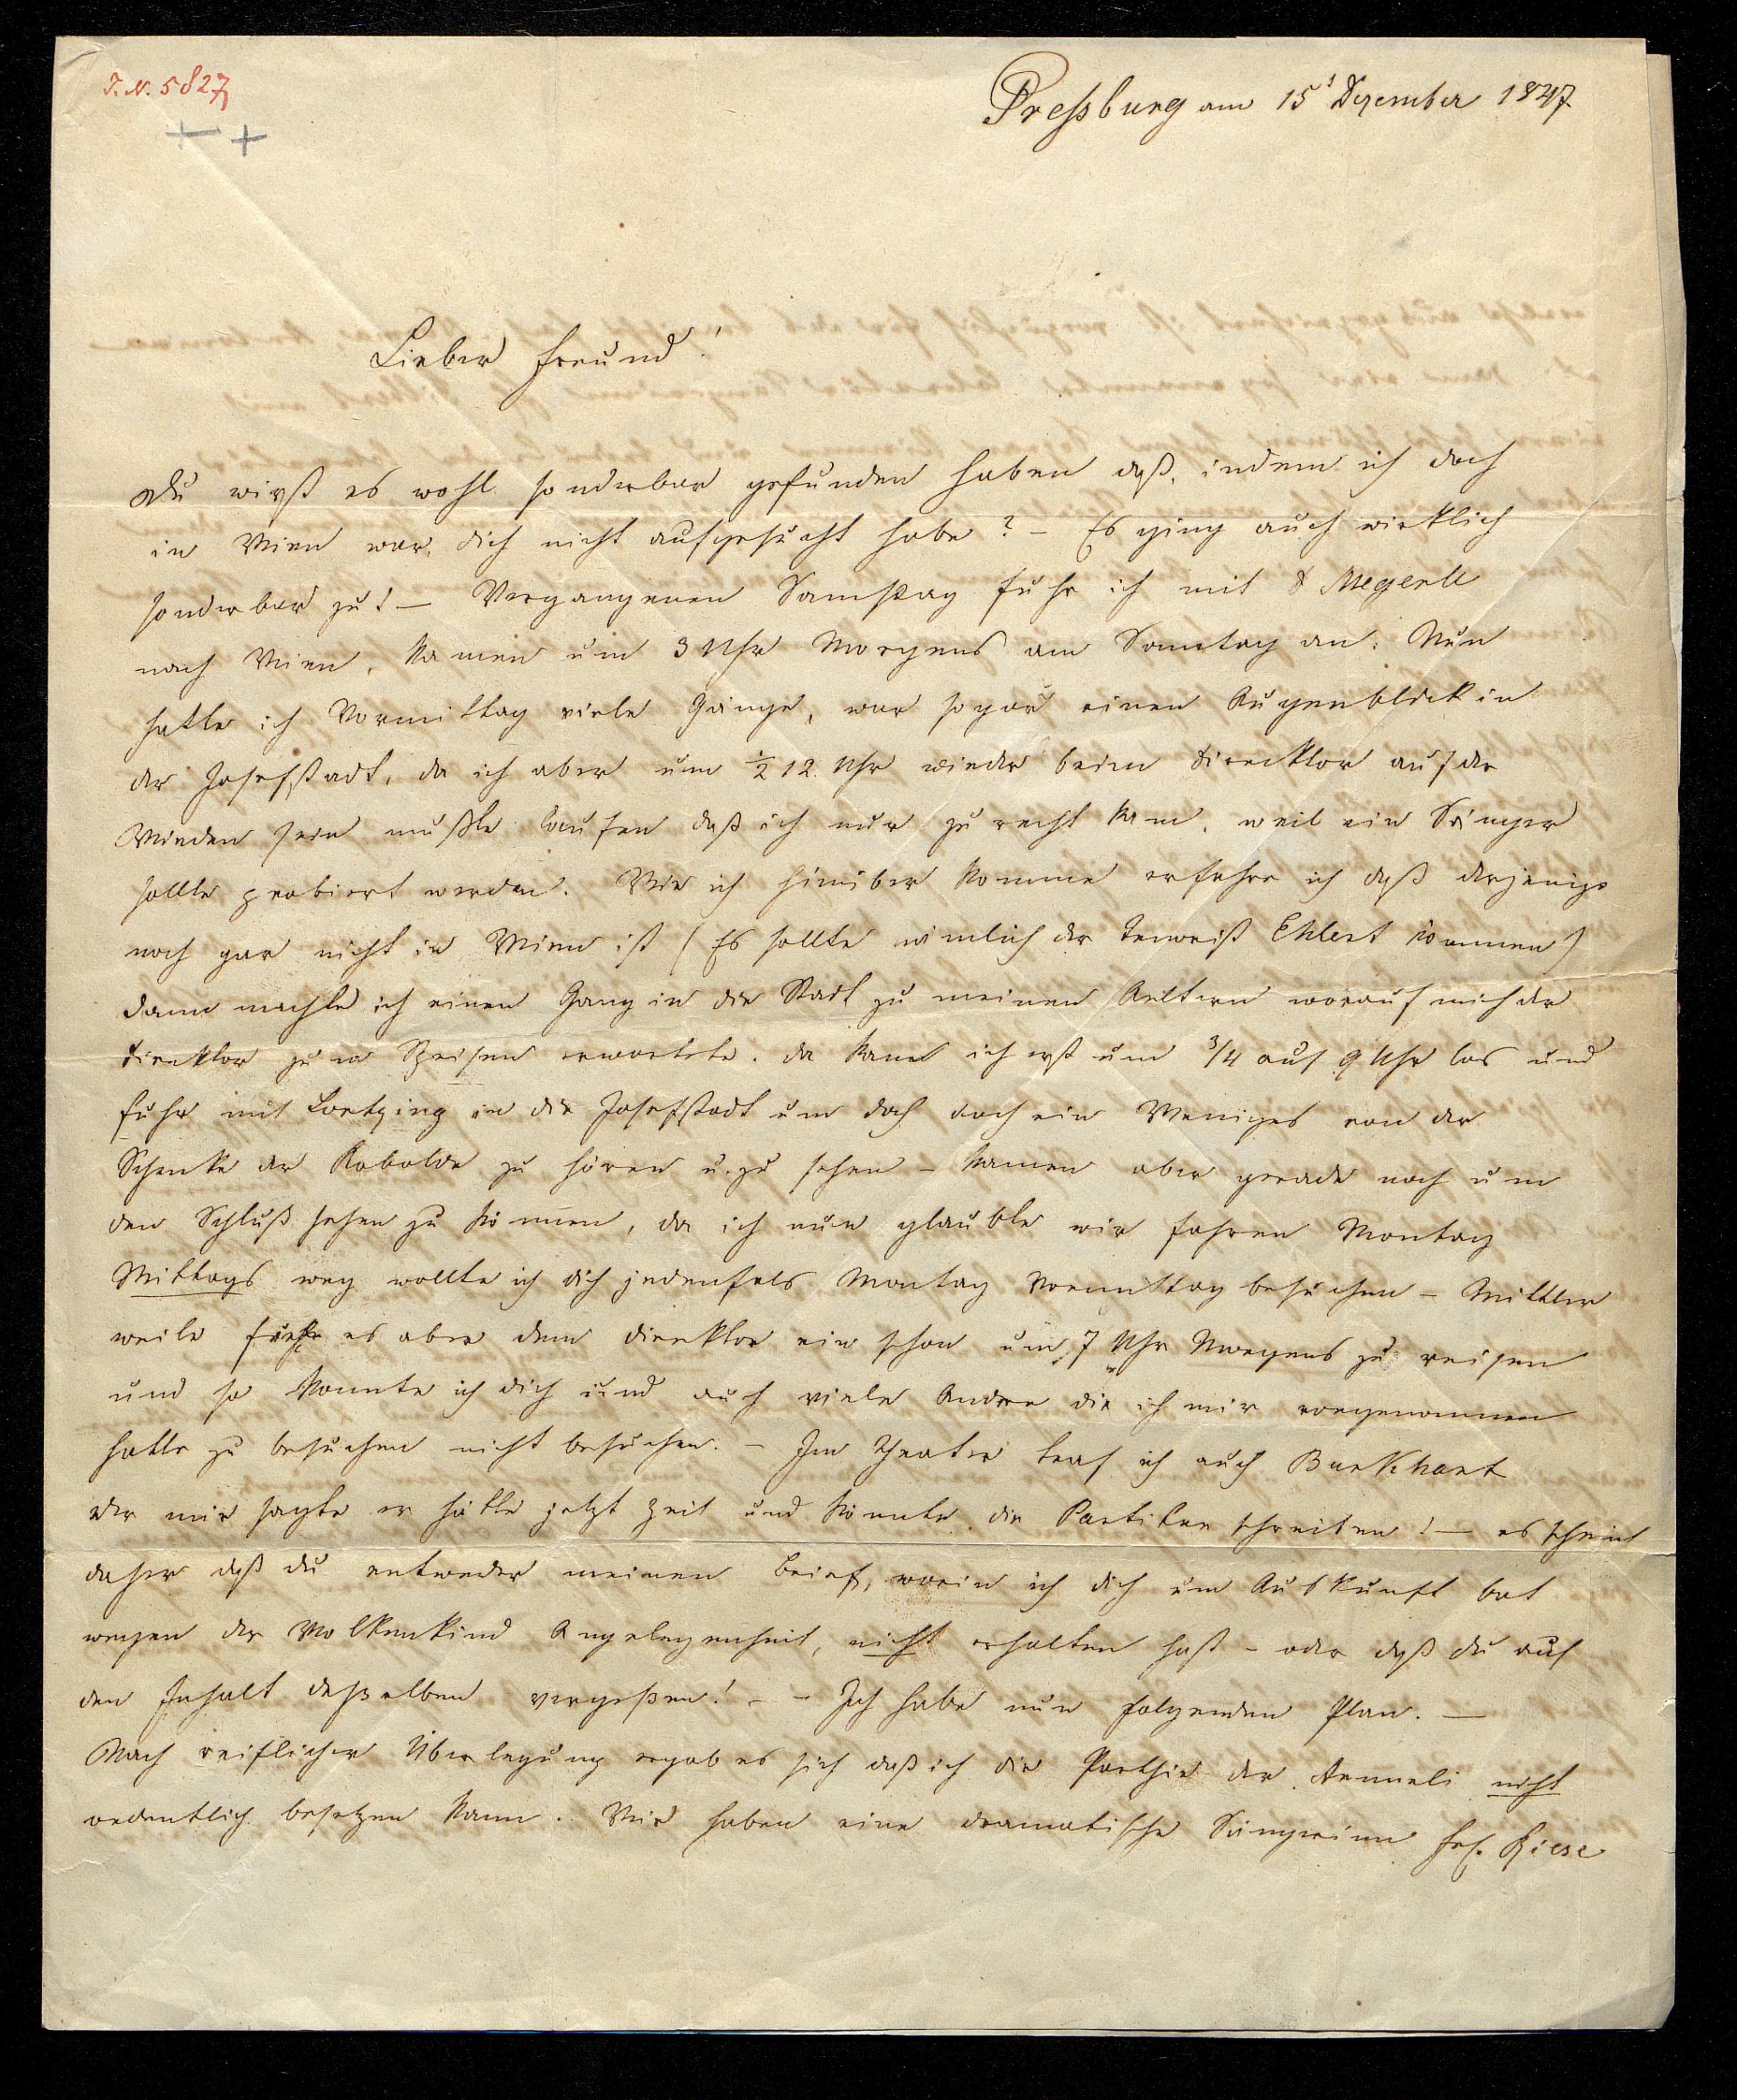 I. N. 5827
Pressburg am 15t Dezember 1847
Lieber Freund!
Du wirst es wohl sonderbar gefunden haben daß, indem ich doch
in Wien war, dich nicht aufgesucht habe? – Es ging auch wirklich
sonderbar zu! – Vergangenen Samstag fuhr ich mit Megerle
nach Wien, kamen um 3 Uhr Morgens am Sonntag an. Nun
hatte ich Vormittag viele Gänge, war sogar einen Augenblick in
der Josefstadt, da ich aber um ½ 12 Uhr wieder beim Direcktor auf der
Wieden sein mußte laufen daß ich nur zu recht kam, weil ein Sänger
sollte probiert werden. Wie ich hinüber komme erfahre ich daß derjenige
noch gar nicht in Wien ist (Es sollte nämlich der Tenorist Ehlert kommen)
dann machte ich einen Gang in die Stadt zu meinen Aeltern worauf mich der
Direktor zum Speisen erwartete. Da kam ich erst um ¾ auf 9 Uhr los und
fuhr mit Lortzing in die Josefstadt um doch noch ein Weniges von der
Schenke der Kobolde zu hören u. zu sehen – kamen aber gerade noch um
den Schluß sehen zu können, da ich nun glaubte wir fahren Montag
Mittags weg wollte ich dich jedenfals Montag Vormittag besuchen – Mittler
weile fiehl es aber dem Direktor ein schon um 7 Uhr Morgens zu reisen
und so konnte ich dich und auch viele Andere die ich mir vorgenommen
hatte zu besuchen nicht besuchen. – Im Theater traf ich auch Burkhart
der mir sagte er hätte jetzt Zeit und könnte die Partitur schreiben! – es scheint
daher daß du entweder meinen Brief, worin ich dich um Auskunft bat
wegen der Wolkenkind Angelegenheit, nicht erhalten hast – oder daß du auf
den Inhalt deßselben vergeßen! – – Ich habe nun folgenden Plan. –
Nach reiflicher Überlegung ergab es sich daß ich die Parthie der Annneli nicht
ordentlich besetzen kann. Wir haben eine dramatische Sängerinn Frl. Riese